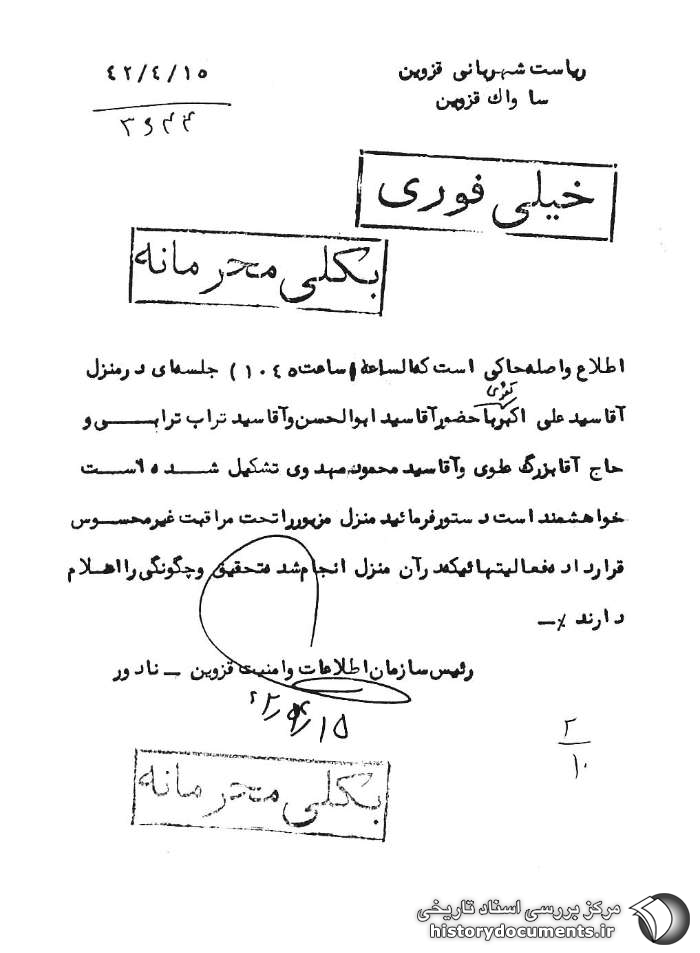 ریاست شهربانی قزوین
ساواك قزوین
۴۲/۴/۱۵
۳۶۴۴
خیلی فوری
بکلی محرمانه
اطلاع واصله حاکی است که الساعة (ساعت ۱۰۴۵) جلسه‌ای در منزل
آقا سید علی اکبر با حضور آقا سید ابوالحسن و آقا سید تراب ترابی و
حاج آقا بزرگ علوی و آقا سید محمود مهدوی تشکیل شده است
خواهشمند است دستور فرمائید منزل مزبور را تحت مراقبت غیر محسوس
قرار داده فعالیتهائیکه در آن منزل انجام شد تحقیق و چگونگی را اعلام
دارند ٪ــ
رئیس سازمان اطلاعات و امنیت قزوین ــ نادور
۴۲/۴/۱۵
۲
۱۰
بکلی محرمانه
مرکز بررسی اسناد تاریخی
historydocuments.ir